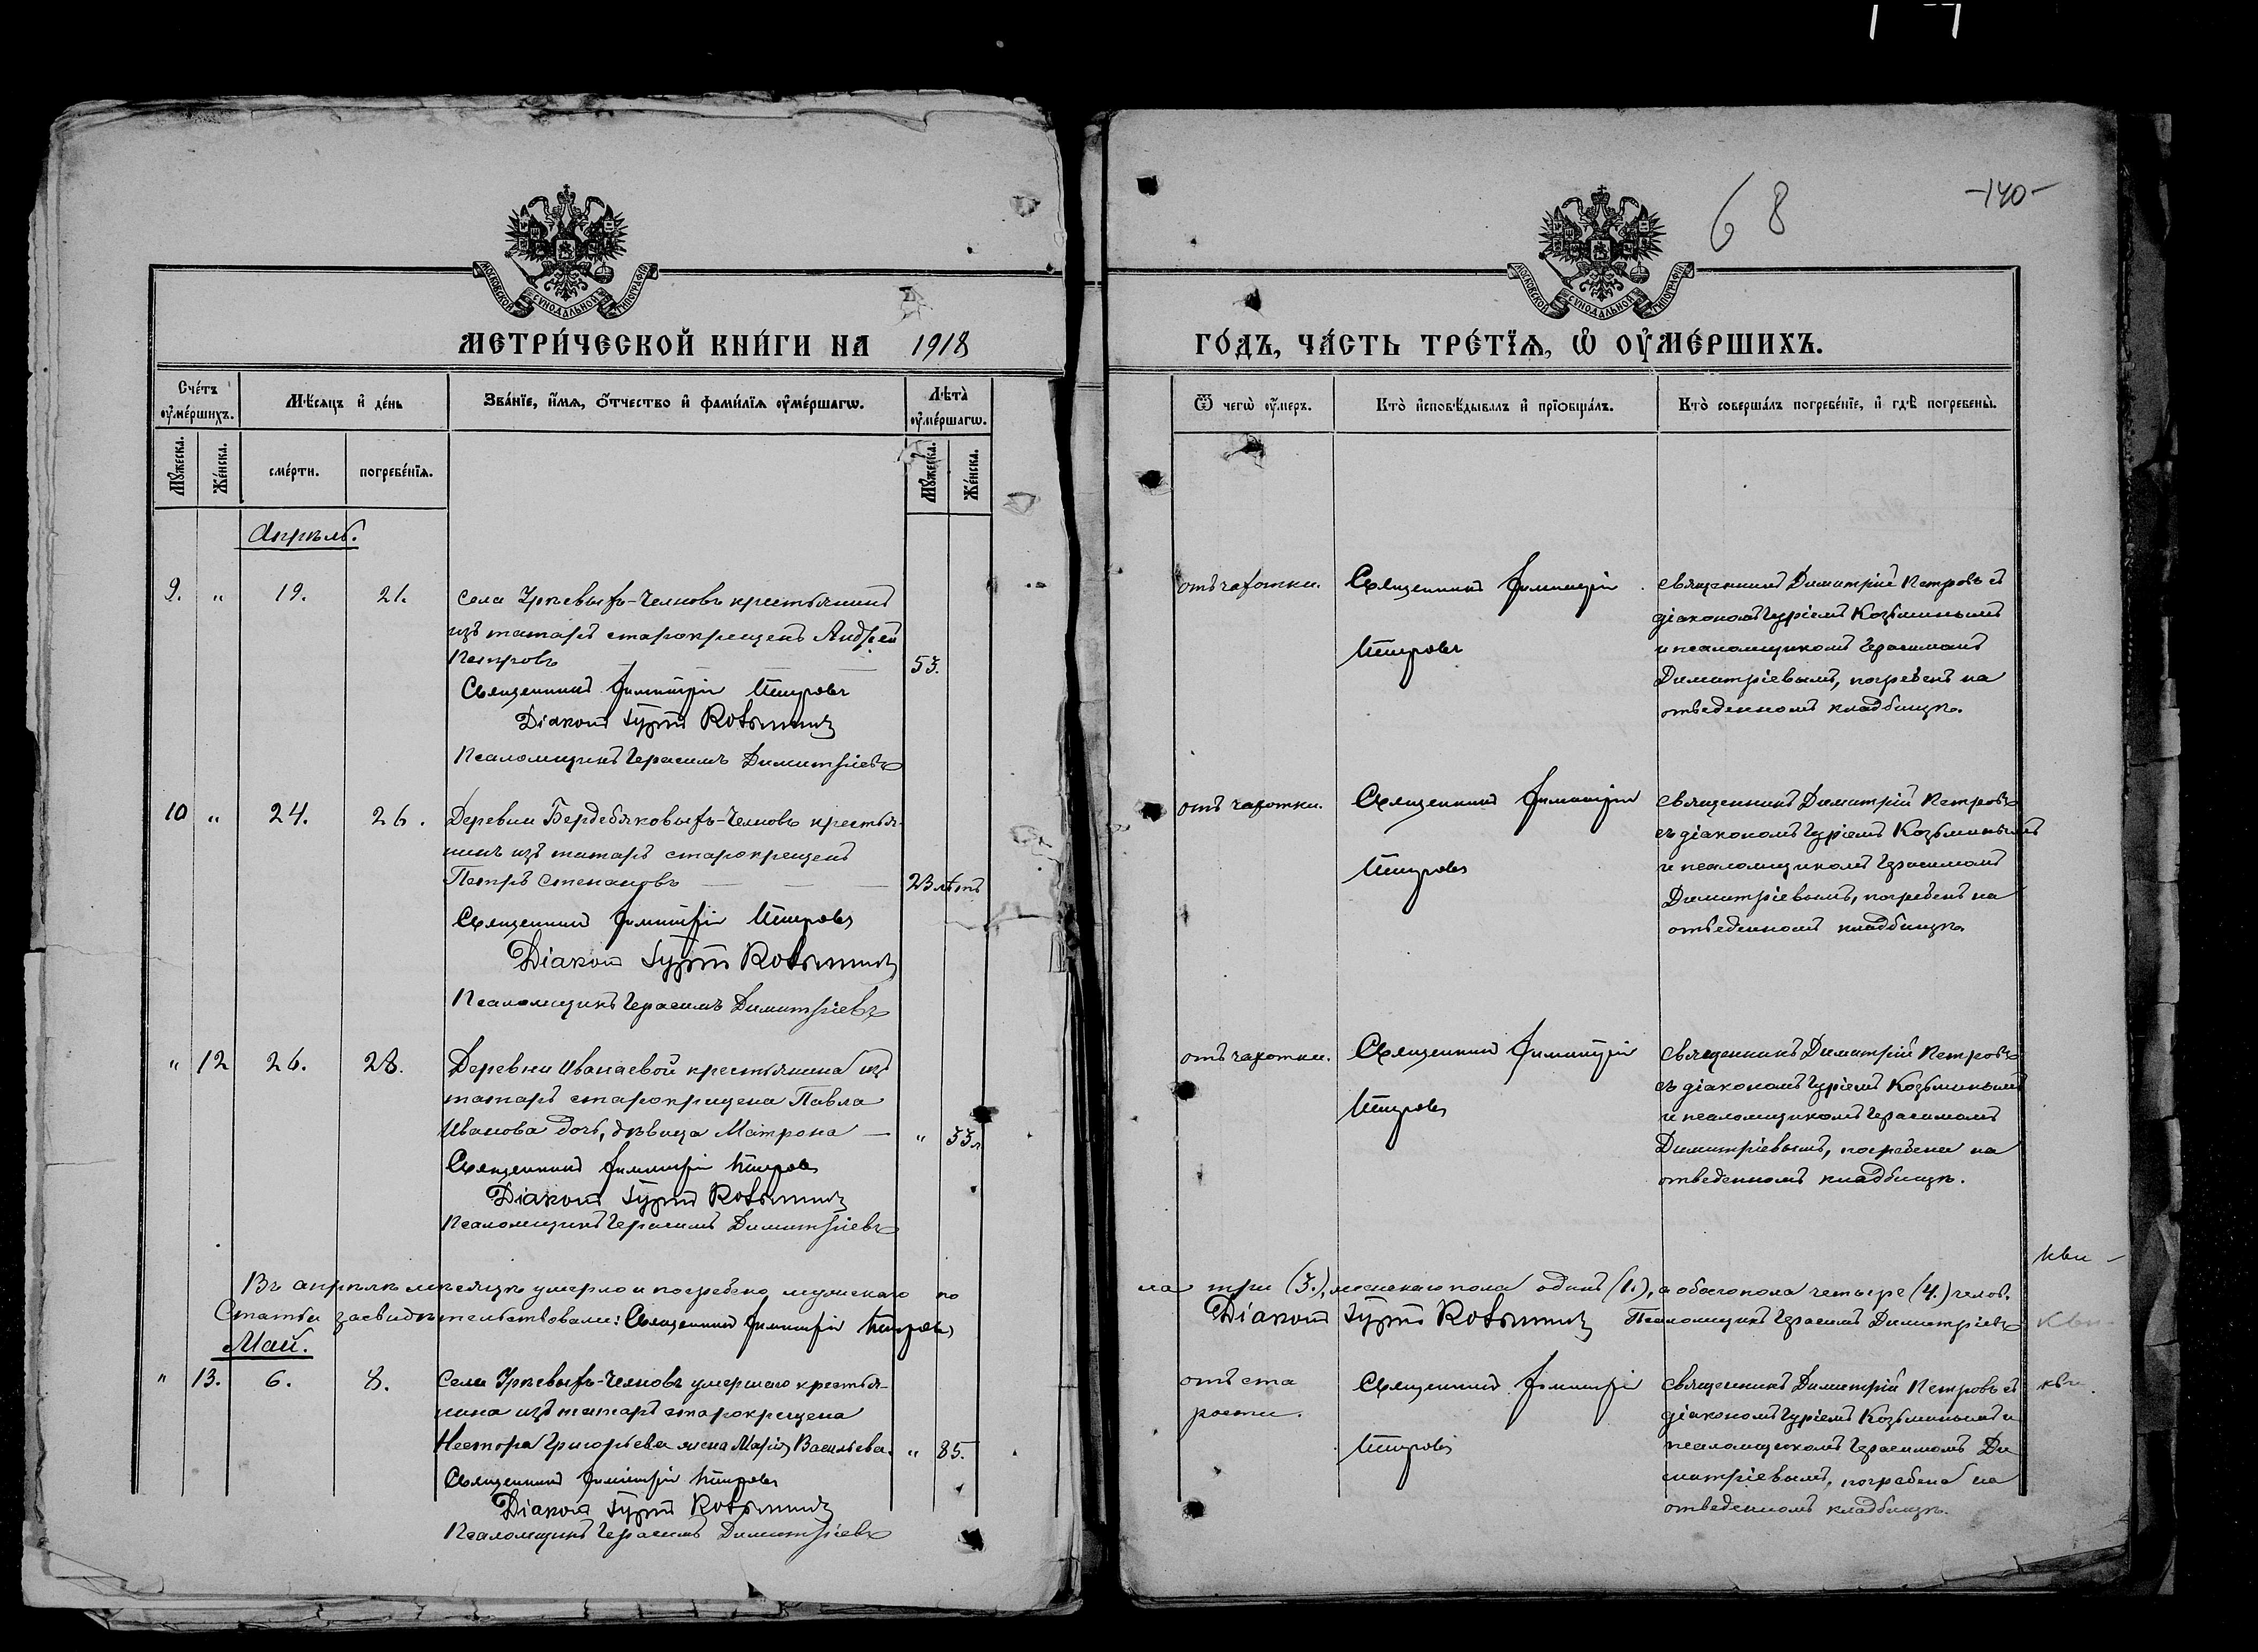 68
-140-
МОСКОВСКОЙ СѴНОДАЛЬНОЙ ТИПОГРАФІИ
МОСКОВСКОЙ СѴНОДАЛЬНОЙ ТИПОГРАФІИ
МЕТРИ́ЧЕСКОЙ КНИ́ГИ НА 1918
ГО́ДЪ, ЧА́СТЬ ТРЕ́ТЇѦ, Ѡ҆ ОУ҆МЕ́РШИХЪ.
Сче́тъ оу҆ме́ршихъ.
Мѣ́сѧцъ и҆ де́нь
Зва́нїе, и҆́мѧ, ѻ҆́тчество и҆ фами́лїѧ оу҆ме́ршагѡ.
Лѣ́та оу҆ме́ршагѡ.
Мꙋ́жеска.
Же́нска.
сме́рти.
погребе́нїѧ.
Мꙋ́жеска.
Же́нска.
Ѿ чегѡ̀ оу҆́меръ.
Кто̀ и҆сповѣ́дывалъ и҆ прїѻбща́лъ.
Кто̀ соверша́лъ погребе́нїе, и҆ гдѣ̀ погребены̀.
Апрѣль.
9. " 19. 21.
Села Урѣевыхъ-Челновъ крестьянинъ
изъ татаръ старокрещенъ Андрей
Петровъ — — — 53.
Священникъ Димитрій Петровъ
Діаконъ Гурій Козьминъ
Псаломщикъ Герасимъ Димитріевъ
отъ чахотки.
Священникъ Димитрій
Петровъ
Священникъ Димитрій Петровъ съ
діакономъ Гуріемъ Козьминымъ
и псаломщикомъ Герасимомъ
Димитріевымъ, погребенъ на
отведенномъ кладбищѣ.
10 " 24. 26.
Деревни Бердебяковыхъ-Челновъ крестья-
нинъ изъ татаръ старокрещенъ
Петръ Степановъ — — — 23 лѣтъ
Священникъ Димитрій Петровъ
Діаконъ Гурій Козьминъ
Псаломщикъ Герасимъ Димитріевъ
отъ чахотки.
Священникъ Димитрій
Петровъ
Священникъ Димитрій Петровъ
съ діакономъ Гуріемъ Козьминымъ
и псаломщикомъ Герасимомъ
Димитріевымъ, погребенъ на
отведенномъ кладбищѣ
" 12 26. 28.
Деревни Иванаевой крестьянина изъ
татаръ старокрещена Павла
Иванова дочь, дѣвица Матрона — " 33 л
Священникъ Димитрій Петровъ
Діаконъ Гурій Козьминъ
Псаломщикъ Герасимъ Димитріевъ
отъ чахотки.
Священникъ Димитрій
Петровъ
Священникъ Димитрій Петровъ
съ діакономъ Гуріемъ Козьминымъ
и псаломщикомъ Герасимомъ
Димитріевымъ, погребена на
отведенномъ кладбищѣ.
Въ апрѣлѣ мѣсяцѣ умерло и погребено мужскаго по
ла три (3.), женскаго пола одинъ (1.), а обоего пола четыре (4.) челов.
Статьи засвидѣтельствовали: Священникъ Димитрій Петровъ
Діаконъ Гурій Козьминъ Псаломщикъ Герасимъ Димитріевъ
Май.
" 13. 6. 8.
Села Урѣевыхъ-Челновъ умершаго крестья-
нина изъ татаръ старокрещена
Нестора Григорьева жена Марія Васильева. " 85.
Священникъ Димитрій Петровъ
Діаконъ Гурій Козьминъ
Псаломщикъ Герасимъ Димитріевъ
отъ ста
рости.
Священникъ Димитрій
Петровъ
Священникъ Димитрій Петровъ съ
діакономъ Гуріемъ Козьминымъ и
псаломщикомъ Герасимомъ Ди
митріевымъ, погребена на
отведенномъ кладбищѣ.